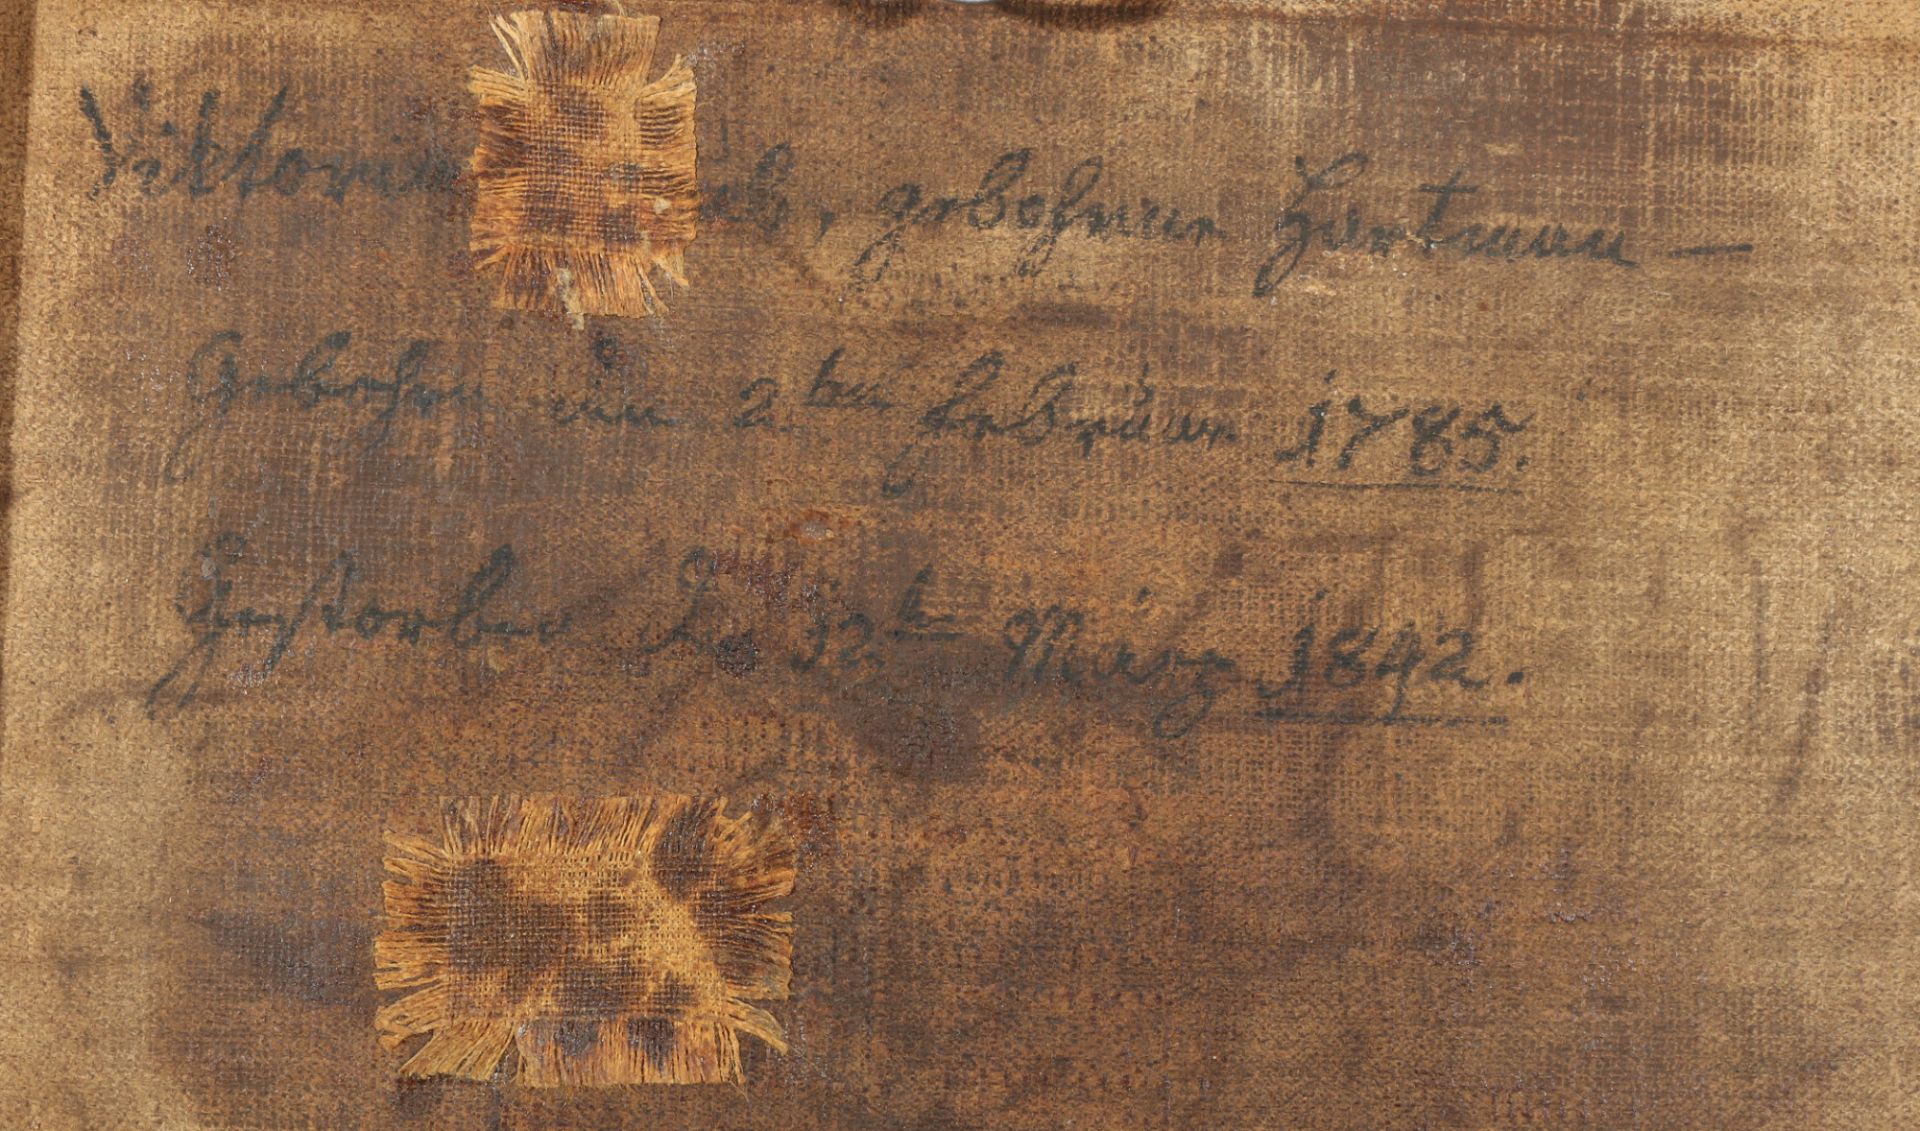 Viktoria gebohrne Hartman —
Gebohren den 2ten Februar 1785.
Gestorben den März 1842.